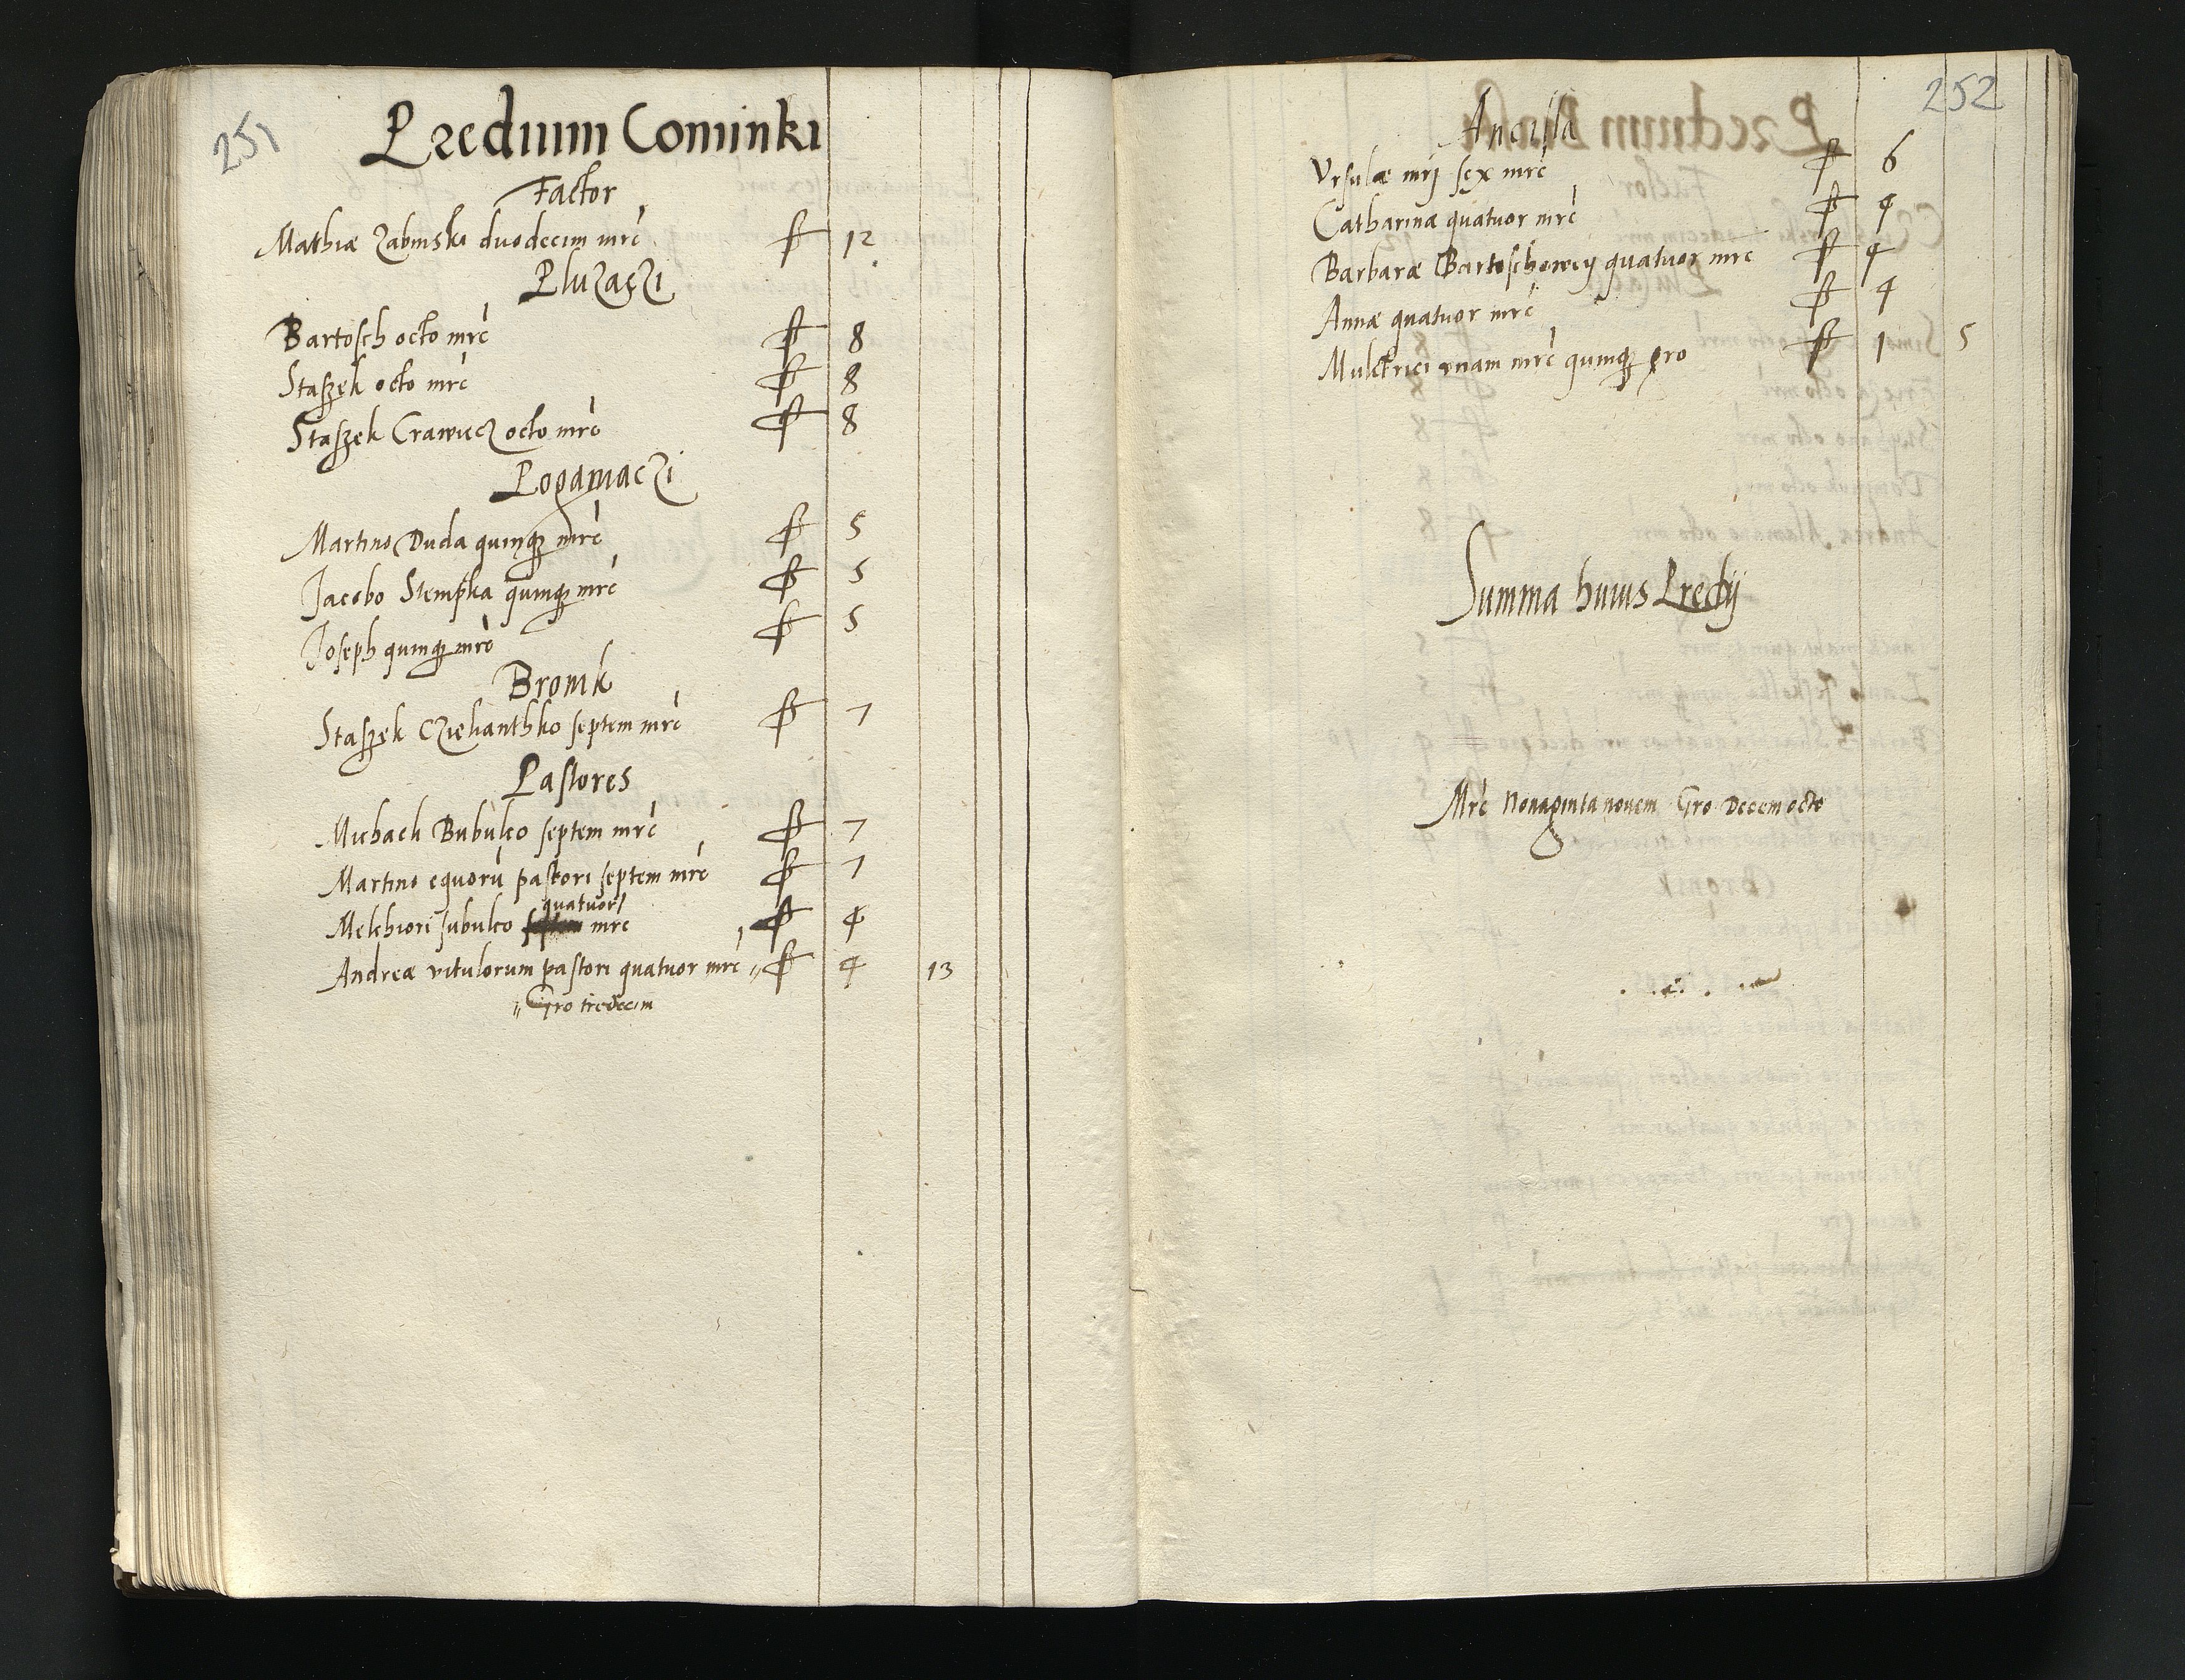 251
Predium Cominki
Factor
Mathiæ Zabinski duodecim mrc ꝑ 12
Pluzaczi
Bartosch octo mrc ꝑ 8
Staszek octo mrc ꝑ 8
Staszek Crawiecz octo mrc ꝑ 8
Poganiaczi
Martino Duda quinqꝫ mrc ꝑ 5
Jacobo Stempka quinqꝫ mrc ꝑ 5
Joseph quinqꝫ mrc ꝑ 5
Bronik
Staszek Czielianthko septem mrc ꝑ 7
Pastores
Michaeli Bubulco septem mrc ꝑ 7
Martino equorū pastori septem mrc ꝑ 7
quatuor
Melchiori subulco mrc ꝑ 4
Andreæ vitulorum pastori quatuor mrc ꝑ 4 13
Gro tredecim
252
Ancilla
Vrsulæ mrj sex mrc ꝑ 6
Catharinæ quatuor mrc ꝑ 4
Barbaræ Bartoschowey quatuor mrc ꝑ 4
Annæ quatuor mrc ꝑ 4
Mulctrici vnam mrc quinqꝫ gro ꝑ 1 5
Summa huius Predij
Mrc Nonaginta novem Gro Decem octo